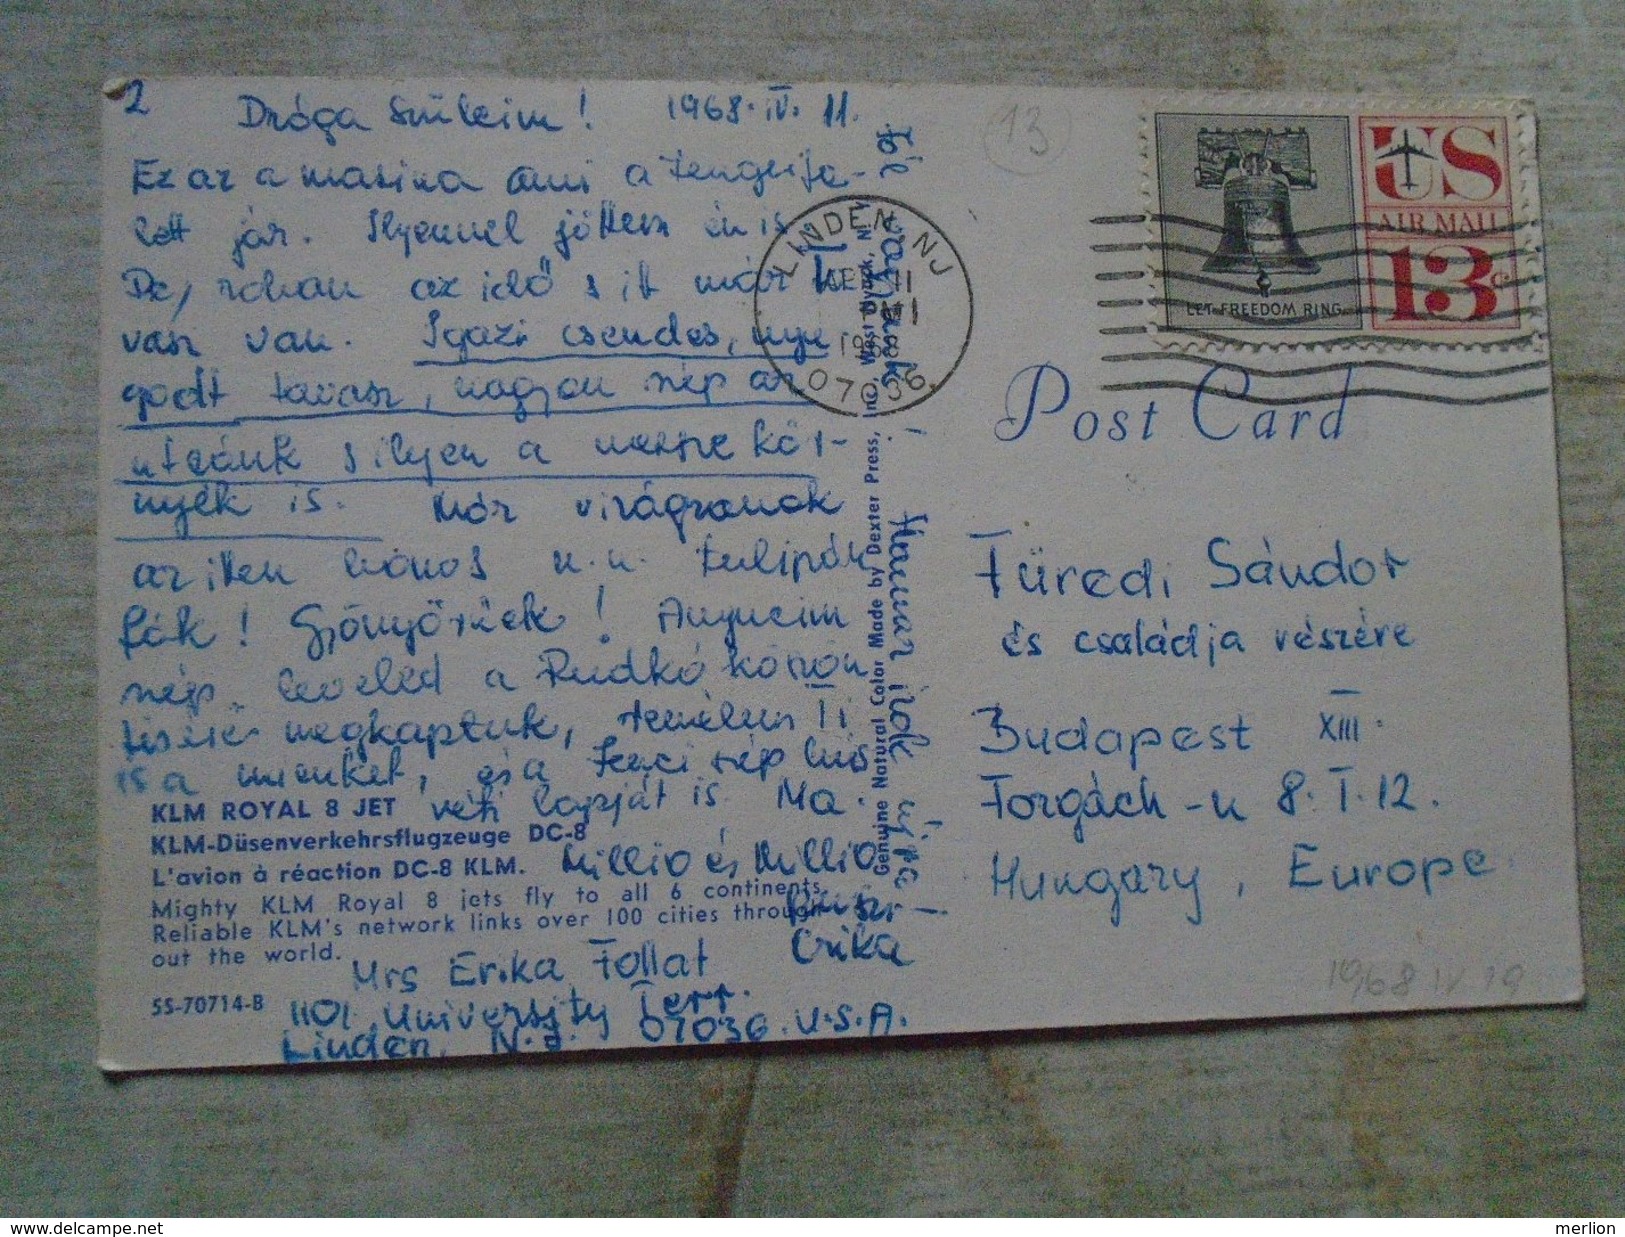 2
Drága Szüleim! 1968. IV. 11.
Ez az a masina ami a tengerfe-
lett jár. Ilyennel jöttem én is
De, rohan az idő s itt már ta
vasz van. Igazi csendes, nyu
godt tavasz, nagyon szép az
utcánk s ilyen a messze kör-
nyék is. Már virágzanak
az itten honos u.n. tulipán
fák! Gyönyörűek! Anyucim
szép leveled a Rudkó köszön
tését megkaptuk, remélem Ti
is a mienket, és a Feri szép hús
véti lapját is. Ma.
Millio és Millio
Puszi
Erika
Mrs Erika Follat
1101 University Terr.
Linden, N.J. 07036. U.S.A.
Hamar irok újra
KLM ROYAL 8 JET
KLM-Düsenverkehrsflugzeuge DC-8
L'avion à réaction DC-8 KLM.
Mighty KLM Royal 8 jets fly to all 6 continents.
Reliable KLM's network links over 100 cities through-
out the world.
55-70714-B
Genuine Natural Color Made by Dexter Press, Inc., West Nyack, N.Y.
LINDEN, NJ
APR 11
PM
1968
07036
13
LET FREEDOM RING
US
AIR MAIL
13c
Post Card
Füredi Sándor
és családja részére
Budapest XIII.
Forgách-u 8. I. 12.
Hungary, Europe
1968 IV 19
delcampe.net
merlion